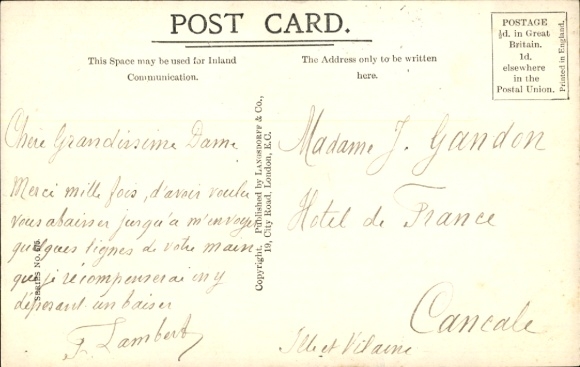 POST CARD.
This Space may be used for Inland
Communication.
The Address only to be written
here.
POSTAGE
½d. in Great
Britain.
1d.
elsewhere
in the
Postal Union.
Printed in England.
Chere Grandissime Dame
Merci mille fois, d'avoir voulu
vous abaisser jusqu'a m'envoyer
quelques lignes de votre main
que je récompenserai en y
déposant un baiser
F. Lambert
Copyright. Published by LANGSDORFF & Co.,
19, City Road, London, E.C.
SERIES No.
Madame J. Gandon
Hotel de France
Cancale
Ille et Vilaine